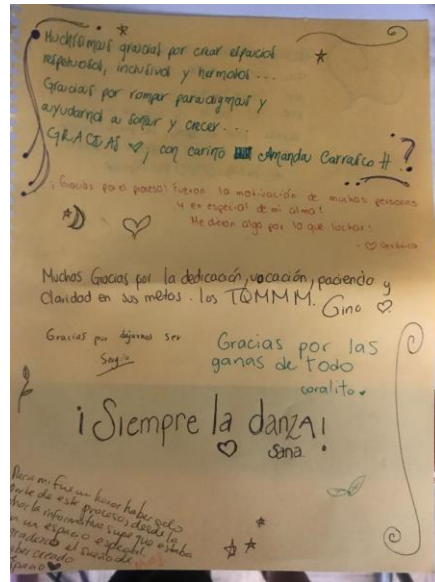 Muchísimas gracias por crear espacios
respetuosos, inclusivos y hermosos...
Gracias por romper paradigmas y
ayudarnos a soñar y crecer...
GRACIAS ♡, con cariño Amanda Carrasco H.
¡Gracias por el proceso! Fueron la motivación de muchas personas
y en especial de mi alma!
Me dieron algo por lo que luchar!
- ♡ Verónica
Muchas Gracias por la dedicación, vocación, paciencia y
Claridad en sus metas. los TQMMM. Gino ♡
Gracias por dejarnos ser
Sergio
Gracias por las
ganas de todo
coralito
¡Siempre la danza!
♡ Sana.
Para mi fue un honor haber sido
parte de este proceso, desde la
charla informativa supe que estaba
en un espacio especial.
el sueño de
haber creado